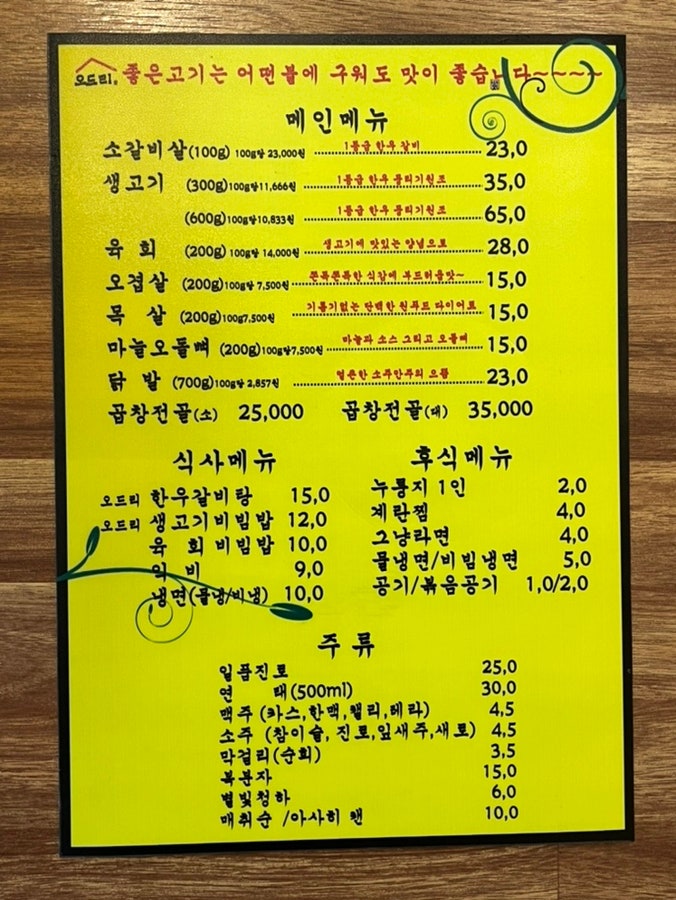 오드리. 좋은고기는 어떤불에 구워도 맛이 좋습니다~~~~
메인메뉴
소갈비살(100g) 100g당 23,000원 1등급 한우 갈비 23,0
생고기 (300g)100g당11,666원 1등급 한우 뭉티기원조 35,0
(600g)100g당10,833원 1등급 한우 뭉티기원조 65,0
육 회 (200g) 100g당 14,000원 생고기에 맛있는 양념으로 28,0
오겹살 (200g)100g당 7,500원 쫀득쫀득한 식감에 부드러움맛~ 15,0
목 살 (200g)100g7,500원 기름기없는 담백한 원푸드 다이어트 15,0
마늘오돌뼈 (200g)100g당7,500원 마늘과 소스 그리고 오돌뼈 15,0
닭 발 (700g)100g당 2,857원 얼큰한 소주안주의 으뜸 23,0
곱창전골(소) 25,000 곱창전골(대) 35,000
식사메뉴
오드리 한우갈비탕 15,0
오드리 생고기비빔밥 12,0
육 회비빔밥 10,0
비 9,0
냉면(물냉/비냉) 10,0
후식메뉴
누룽지 1인 2,0
계란찜 4,0
그냥라면 4,0
물냉면/비빔냉면 5,0
공기/볶음공기 1,0/2,0
주 류
일품진로 25,0
연 태(500ml) 30,0
맥주 (카스,한맥,켈리,테라) 4,5
소주 (참이슬, 진로,잎새주,새로) 4,5
막걸리(순희) 3,5
복분자 15,0
별빛청하 6,0
매취순 /아사히 캔 10,0